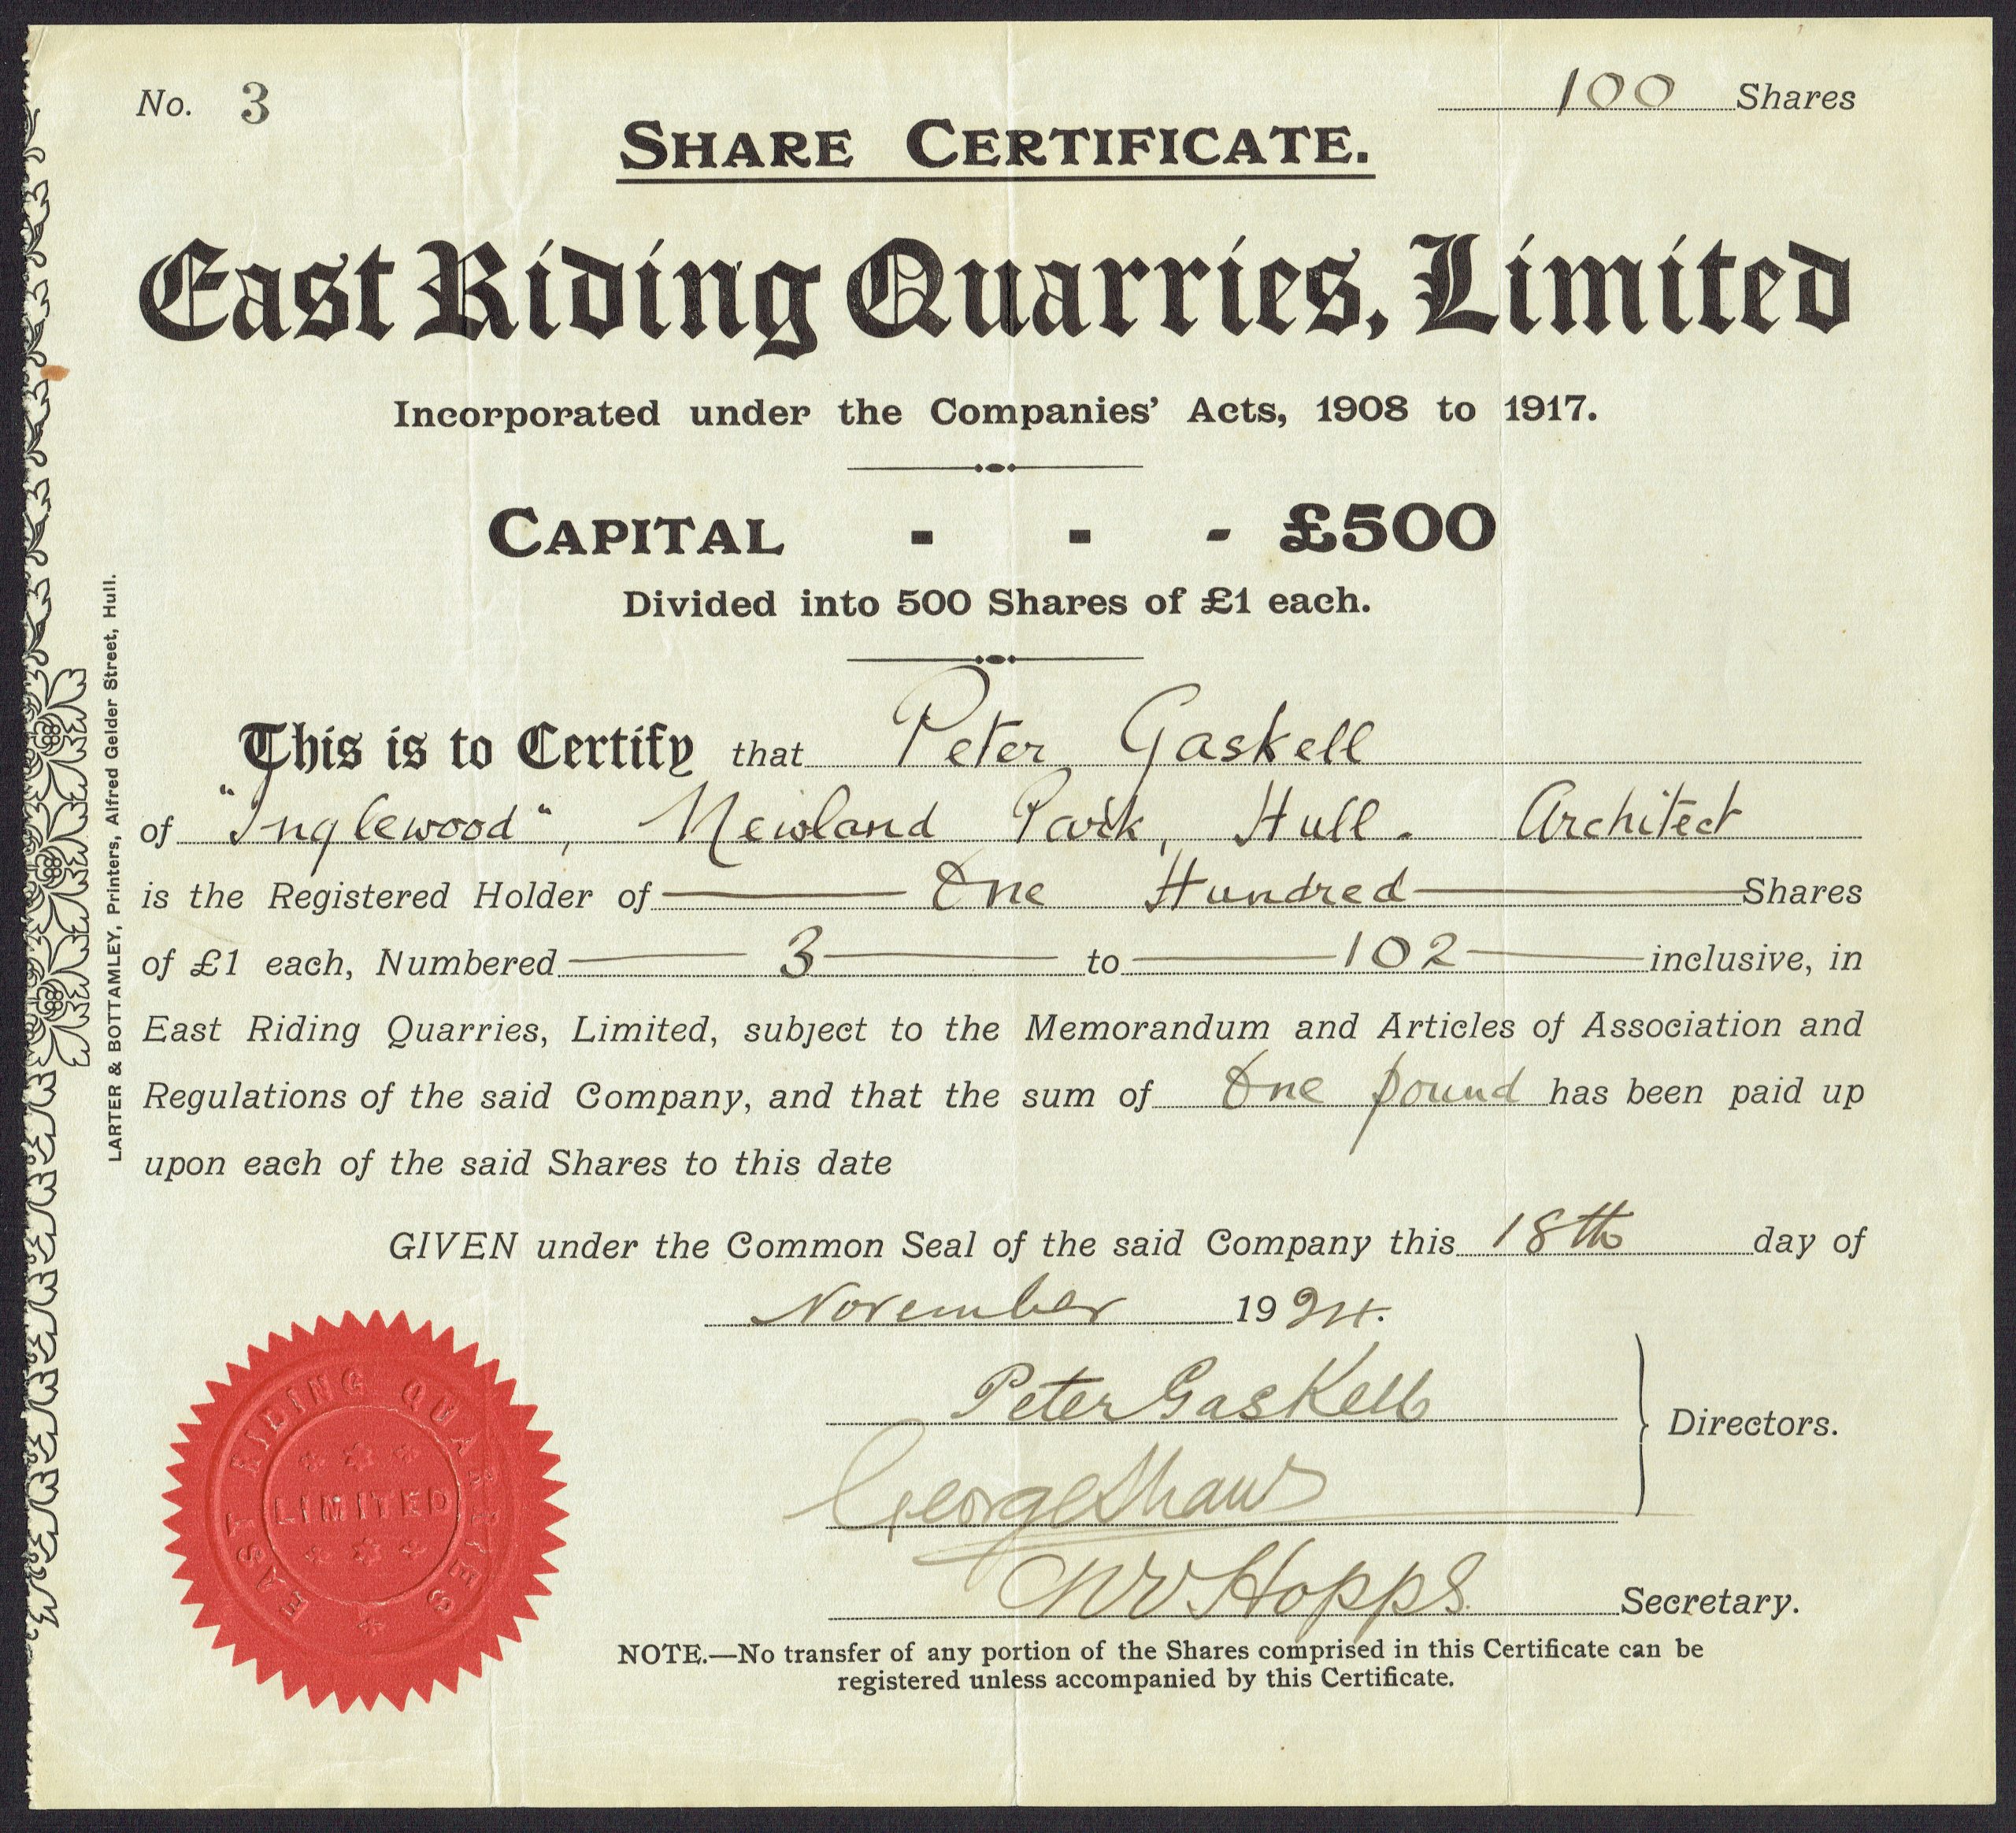 No. 3
100 Shares
SHARE CERTIFICATE.
East Riding Quarries, Limited
Incorporated under the Companies' Acts, 1908 to 1917.
CAPITAL - - - £500
Divided into 500 Shares of £1 each.
This is to Certify that Peter Gaskell
of "Inglewood", Newland Park, Hull. Architect
is the Registered Holder of One Hundred Shares
of £1 each, Numbered 3 to 102 inclusive, in
East Riding Quarries, Limited, subject to the Memorandum and Articles of Association and
Regulations of the said Company, and that the sum of One pound has been paid up
upon each of the said Shares to this date
GIVEN under the Common Seal of the said Company this 18th day of
November 1924.
Peter Gaskell
George Shaw
Directors.
W Hopps
Secretary.
NOTE.—No transfer of any portion of the Shares comprised in this Certificate can be
registered unless accompanied by this Certificate.
EAST RIDING QUARRIES
LIMITED
LARTER & BOTTAMLEY, Printers, Alfred Gelder Street, Hull.